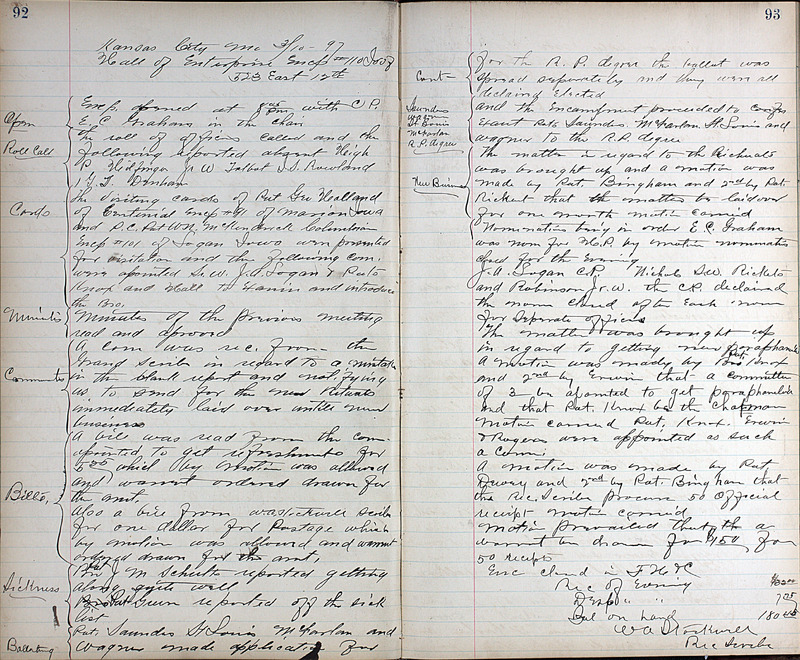 92
Kansas City Mo 3/10-97
Hall of Enterprise Encp #110 IOOF
1323 East 15th
Open
Encp. opened at with C.P.
E.C. Graham in the chair
Roll Call
the roll of officers called and the
following reported absent High
P. Jr W. Talbot Rowland
Cards
the visiting cards of Pat Geo
of Centenial Encp #91 of Marion Iowa
and P.C. Pat W.H. Columbian
Encp #101 of Logan Iowa were presented
for visitation and the following com.
were apointed S.W. J.A. Logan & Pats
Knox and Hall to Examin and introduce
the Bro.
Minuits
Minuites of the previous meeting
read and aproved
A Com was rec. from the
Grand Scribe in regard to a mistake
in the blank report and notifying
us to send for the new Rituals
immediately laid over untill new
buseness
A bill was read from the com
apointed to get refreshments for
5.00 which by motion was allowed
and warrant ordered drawn for
Bills,
the amt.
Also a bill from W.A. Stockwell scribe
for one dollar for Postage which
by motion was allowed and warrant
ordered drawn for the amt,
Pat J M Schultz reported getting
Sickness
along quite well
Pat Green reported off the sick
list
Pat. Saunders St Louis McFarlan and
Balloting
Wagner made application for
93
Cont
for the R. P. degree the ballot was
spread seperately and they were all
declared elected
Saunders
Wagner
St Louis
McFarlan
R.P. degree
and the Encampment proceeded to confer
Exact Pats Saunders. McFarlan St Louis and
Wagner to the R.P. degree
The matter in regard to the Richuals
was brought up and a motion was
New Buisness
made by Pat. Bingham and 2nd by Pat.
Rickets that the matter be laid over
for one month motion carried
Nominations being in order E.C. Graham
was nom for H.P. by motion nominations
closed for the Evening
J.A. Logan C.P. Nichols S.W. Rickets
and Robinson Jr. W. the C.P. declared
the nom closed after each nom
for seperate officers
The matter was brought up
in regard to getting new paraphanelia
A motion was made by Pat Knox
and 2nd by Erwin that a committee
of 3 be apointed to get paraphanelia
and that Pat. Knox be the chapman
motion carried Pat. Knox. Erwin
& Rogers were appointed as such
a Com.
A motion was made by Pat
Dewey and 2nd by Pat Bingham that
the Rec. Scribe procure 50 official
receipt motion carried
motion prevailed that a
warrant be drawn for 4.50 for
50 receipts
Enc closed in F H & C
Rec of Evening
Desp " " 7.25
Bal on hand
W A Stockwell
Rec Scribe